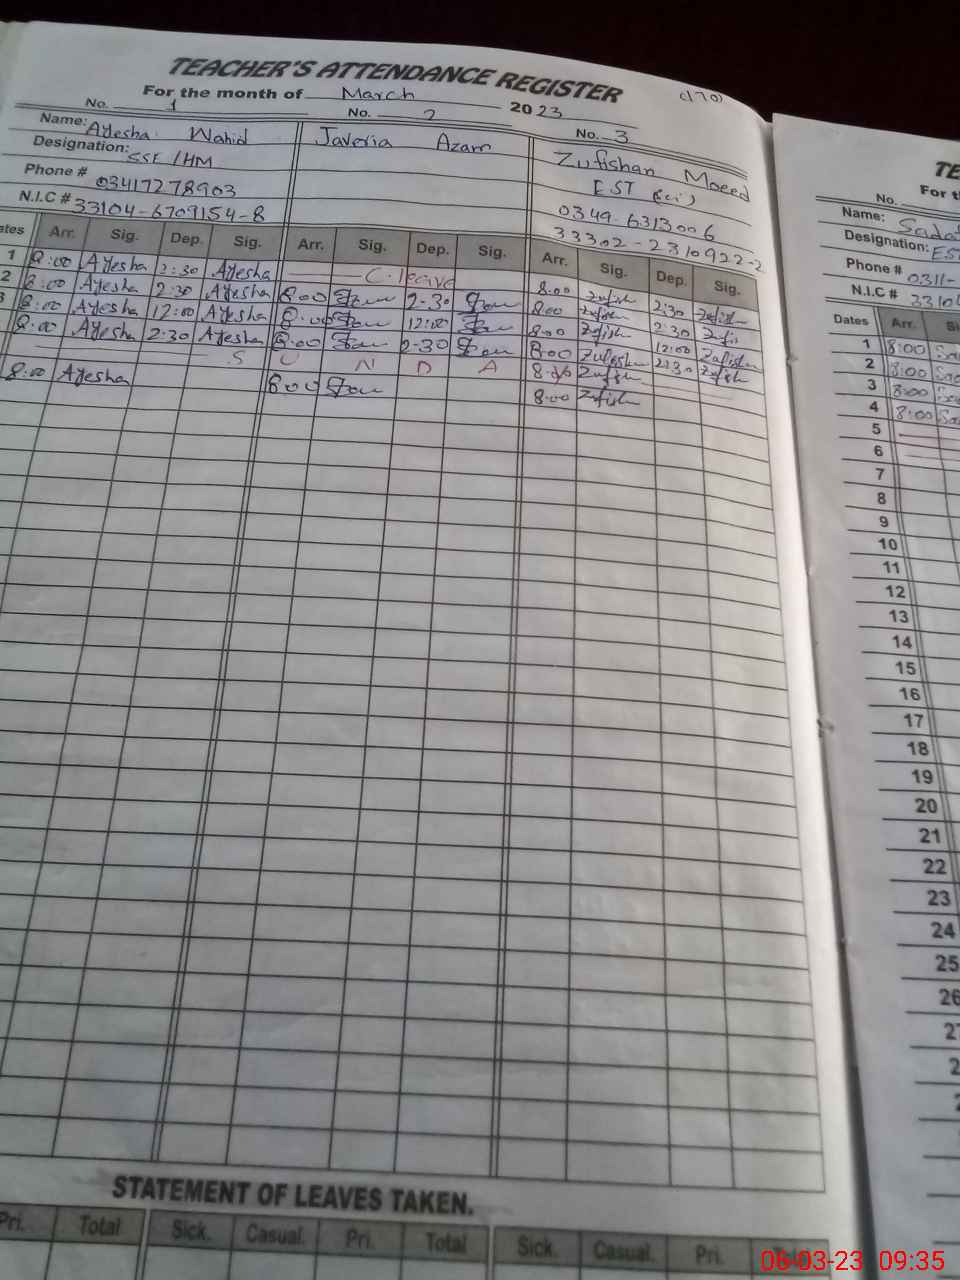 TEACHER'S ATTENDANCE REGISTER
For the month of March 2023
No. 1 No. 2 No. 3
Name: Ayesha Wahid Javeria Azam Zufishan Moeed
Designation: SSE /HM EST (sci)
Phone # 03417278903 0349-6313006
N.I.C # 33104-6709154-8 33302-2310922-2
ates Arr. Sig. Dep. Sig. Arr. Sig. Dep. Sig. Arr. Sig. Dep. Sig.
1 8:00 Ayesha 2:30 Ayesha C. leave 8:00 Zufish 2:30 Zufish
2 8:00 Ayesha 2:30 Ayesha 8:00 2-30 8:00 Zufish 2:30 Zufis
3 8:00 Ayesha 12:00 Ayesha 8:00 12:00 8:00 Zufish 12:00 Zufish
8:00 Ayesha 2:30 Ayesha 8:00 2-30 8:00 Zufish 2:30 Zufish
S U N D A
8:00 Ayesha 8:00 8:00 Zufish
STATEMENT OF LEAVES TAKEN.
Pri. Total Sick. Casual. Pri. Total Sick. Casual. Pri.
TE
For th
No.
Name: Sada
Designation: EST
Phone # 0311-
N.I.C # 3310
Dates Arr. Si
1 8:00 Sa
2 8:00 Sa
3 8:00 Sa
4 8:00 Sa
5
6
7
8
9
10
11
12
13
14
15
16
17
18
19
20
21
22
23
24
25
26
06-03-23 09:35